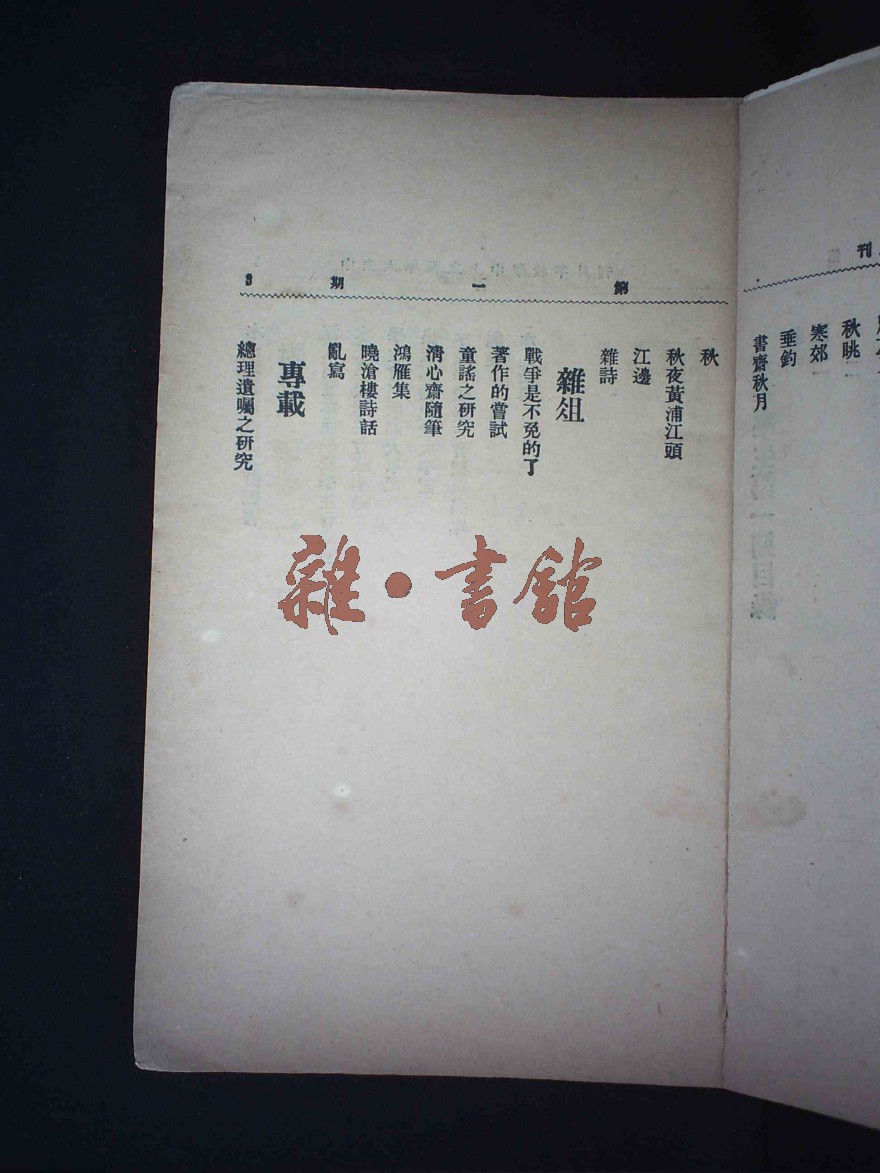 刊
秋眺
寒郊
垂釣
書齋秋月
第一期 3
秋
秋夜黃浦江頭
江邊
雜詩
雜俎
戰爭是不免的了
著作的嘗試
童謠之研究
清心齋隨筆
鴻雁集
曉滄樓詩話
亂寫
專載
總理遺囑之研究
雜·書館